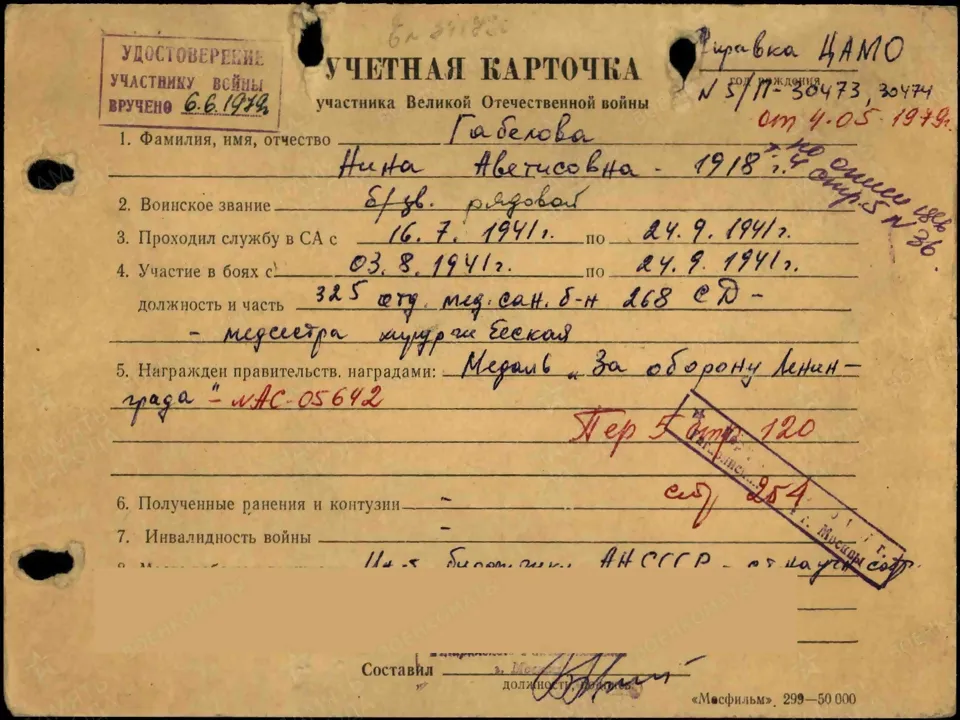 УДОСТОВЕРЕНИЕ
УЧАСТНИКУ ВОЙНЫ
ВРУЧЕНО 6.6.1979г.
Справка ЦАМО
год рождения
№ 5/П-30473, 30474
от 4.05.1979г.
УЧЕТНАЯ КАРТОЧКА
участника Великой Отечественной войны
1. Фамилия, имя, отчество Габелова
Нина Аветисовна - 1918 г.
по описи
стр. 5 № 36
2. Воинское звание б/зв. рядовой
3. Проходил службу в СА с 16.7.1941г. по 24.9.1941г.
4. Участие в боях с 03.8.1941г. по 24.9.1941г.
должность и часть 325 отд. мед. сан. б-н 268 СД -
- медсестра хирургическая
5. Награжден правительств. наградами: Медаль „За оборону Ленин-
града" - №АС-05642
Пер 5 стр 120
стр 254
6. Полученные ранения и контузии -
г. Москвы
7. Инвалидность войны -
АН СССР -
Составил
должность, подпись
«Мосфильм» 299—50 000